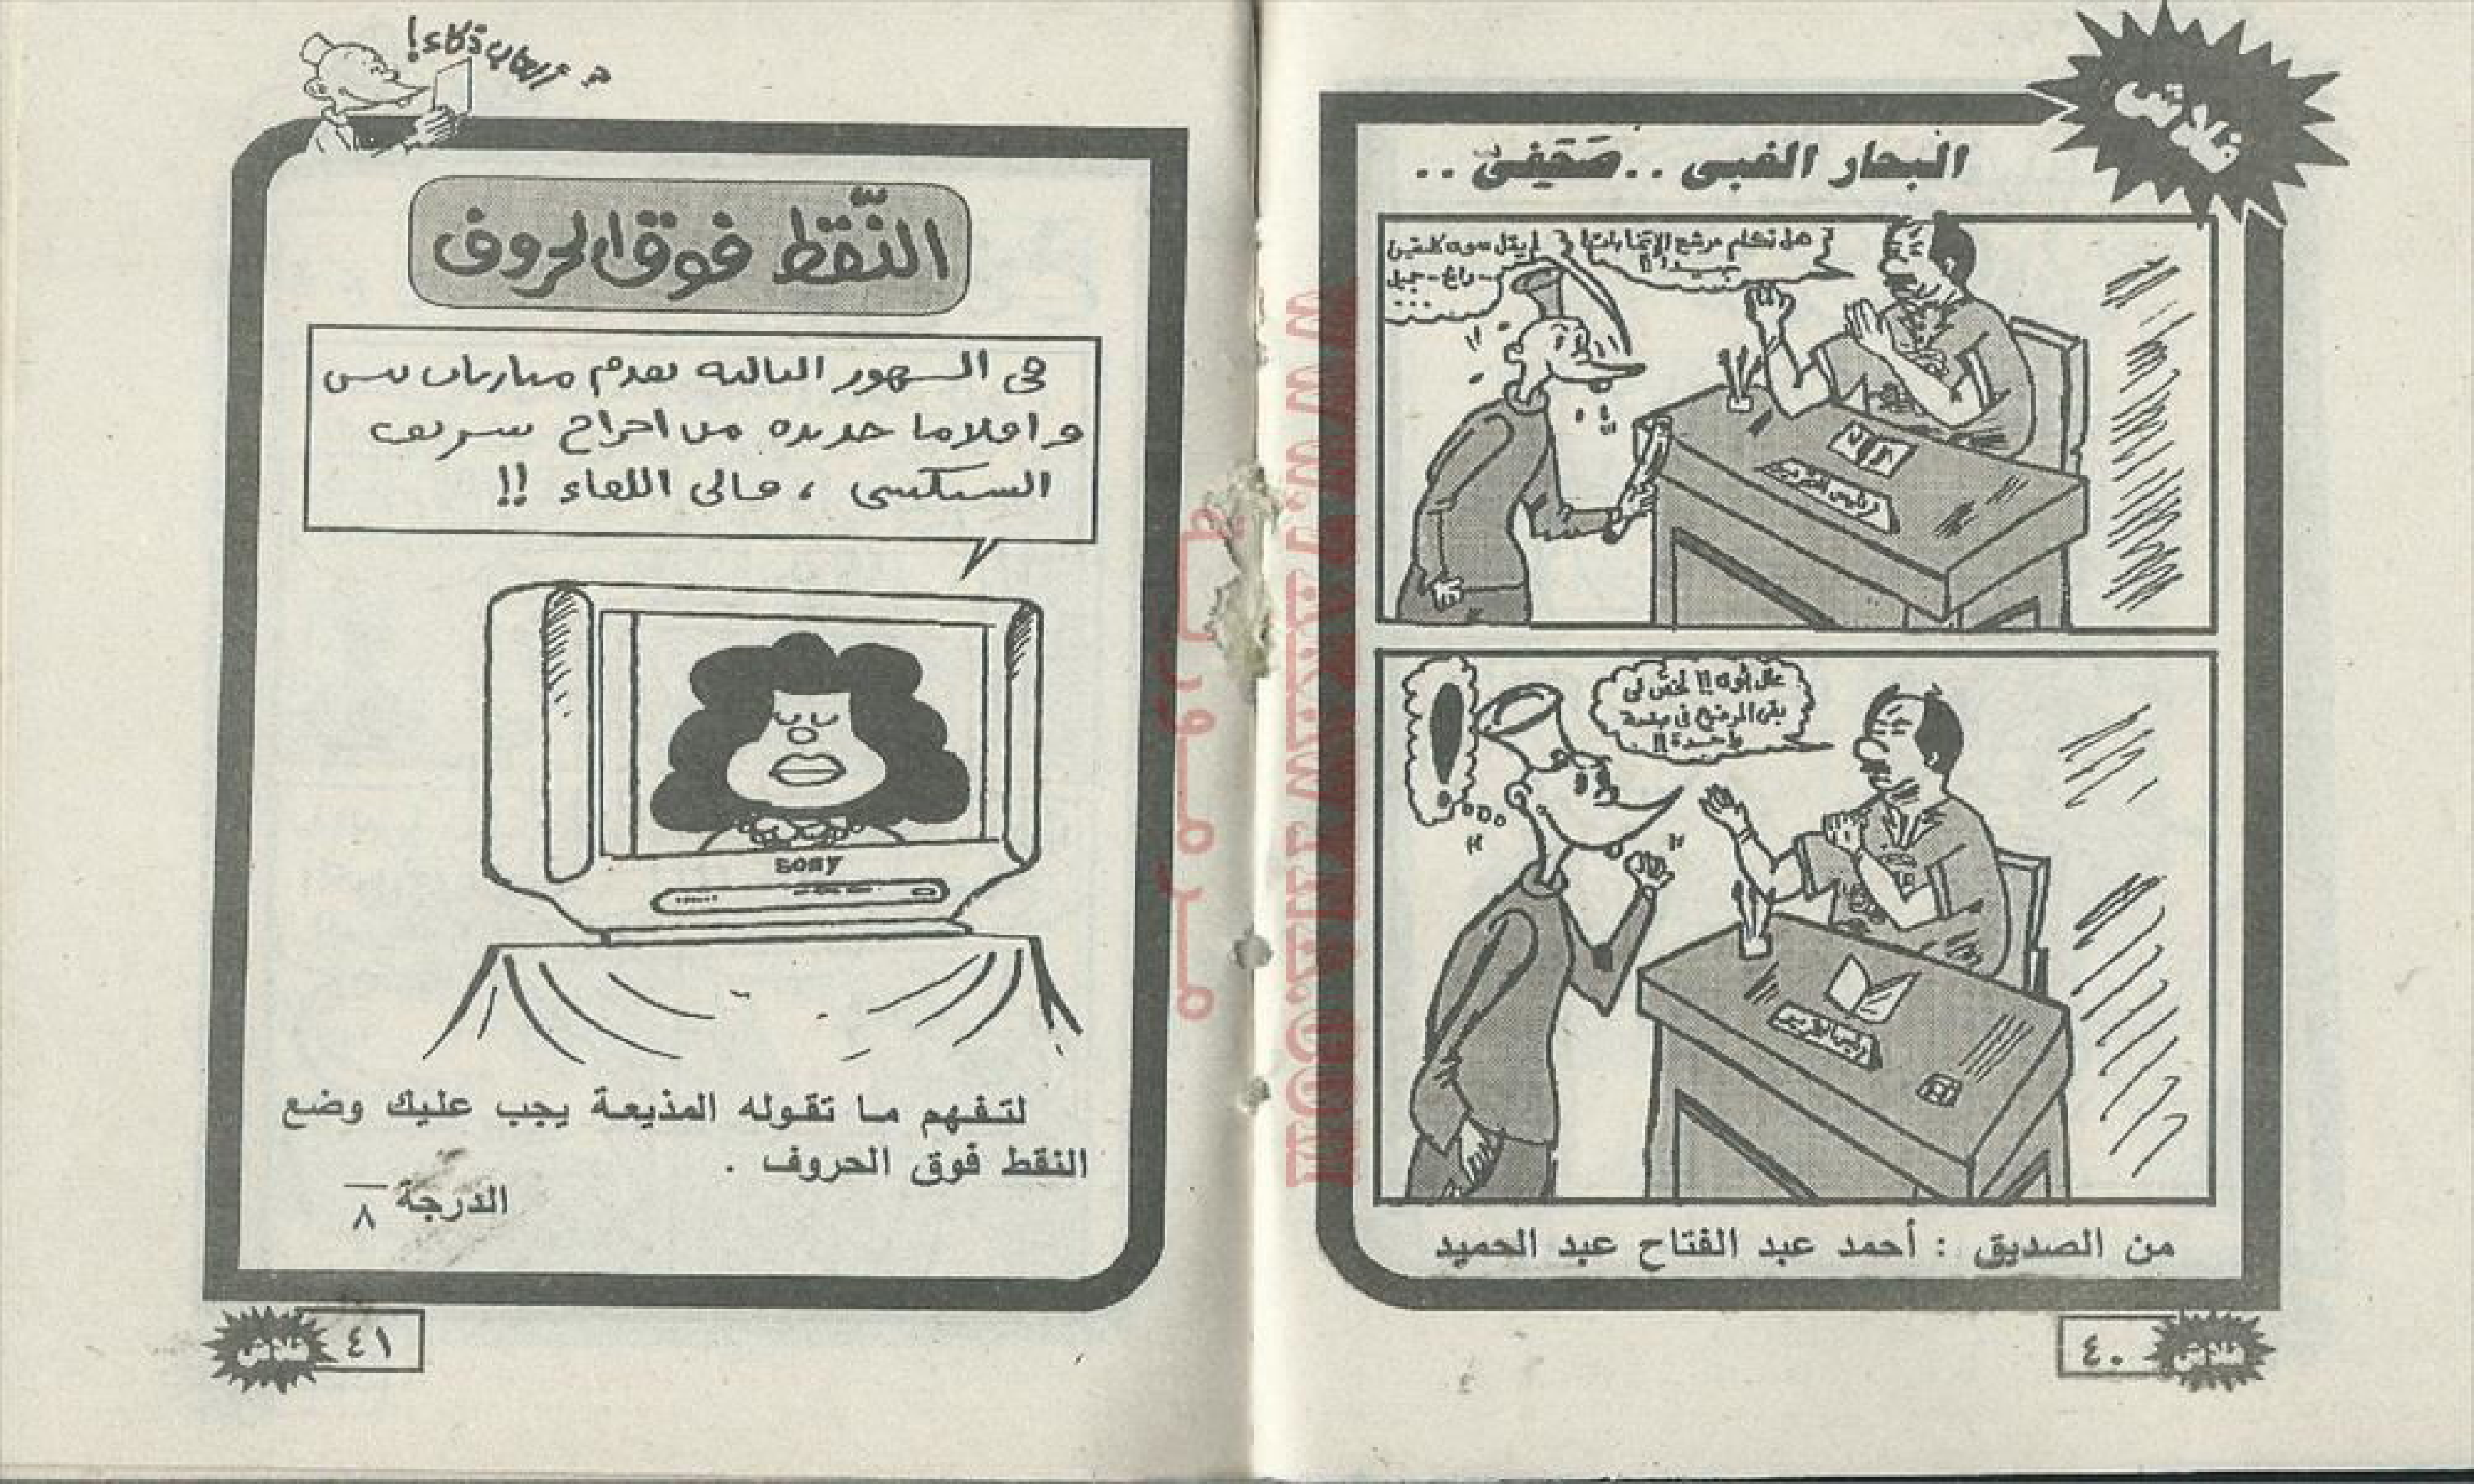 فلاش
البحار الغبى .. صَحَفِىّ ..
هل تكلم مرشح الإنتخابات
جيداً !!
لم يقل سوى كلمتين
- رائع - جميل
رئيس التحرير
عال أوى !! لخّص لى
بقى الموضوع فى صفحة
واحدة !!
رئيس التحرير
من الصديق : أحمد عبد الفتاح عبد الحميد
٤٠
فلاش
ألعاب ذكاء !
النّقط فوق الحروف
هى السهور الىالىه ىعدم مىارىاں ىىس
و اڡلاما حدىده مں احراح سرىڡ
السىكسى ، ڡالى اللهاء !!
SONY
لتفهم ما تقوله المذيعة يجب عليك وضع
النقط فوق الحروف .
الدرجة ٨
٤١
فلاش
WWW.
.COM